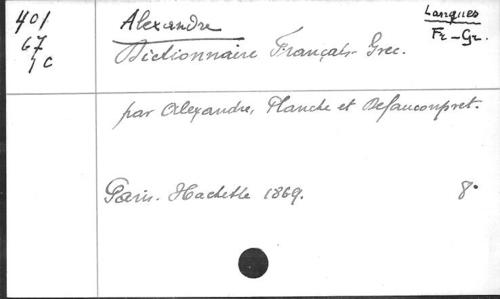 401
67
1c
Alexandre
Langues
Fr-Gr.
Dictionnaire Français-Grec.
par Alexandre, Planche et Defauconpret.
Paris. Hachette 1869. 8°